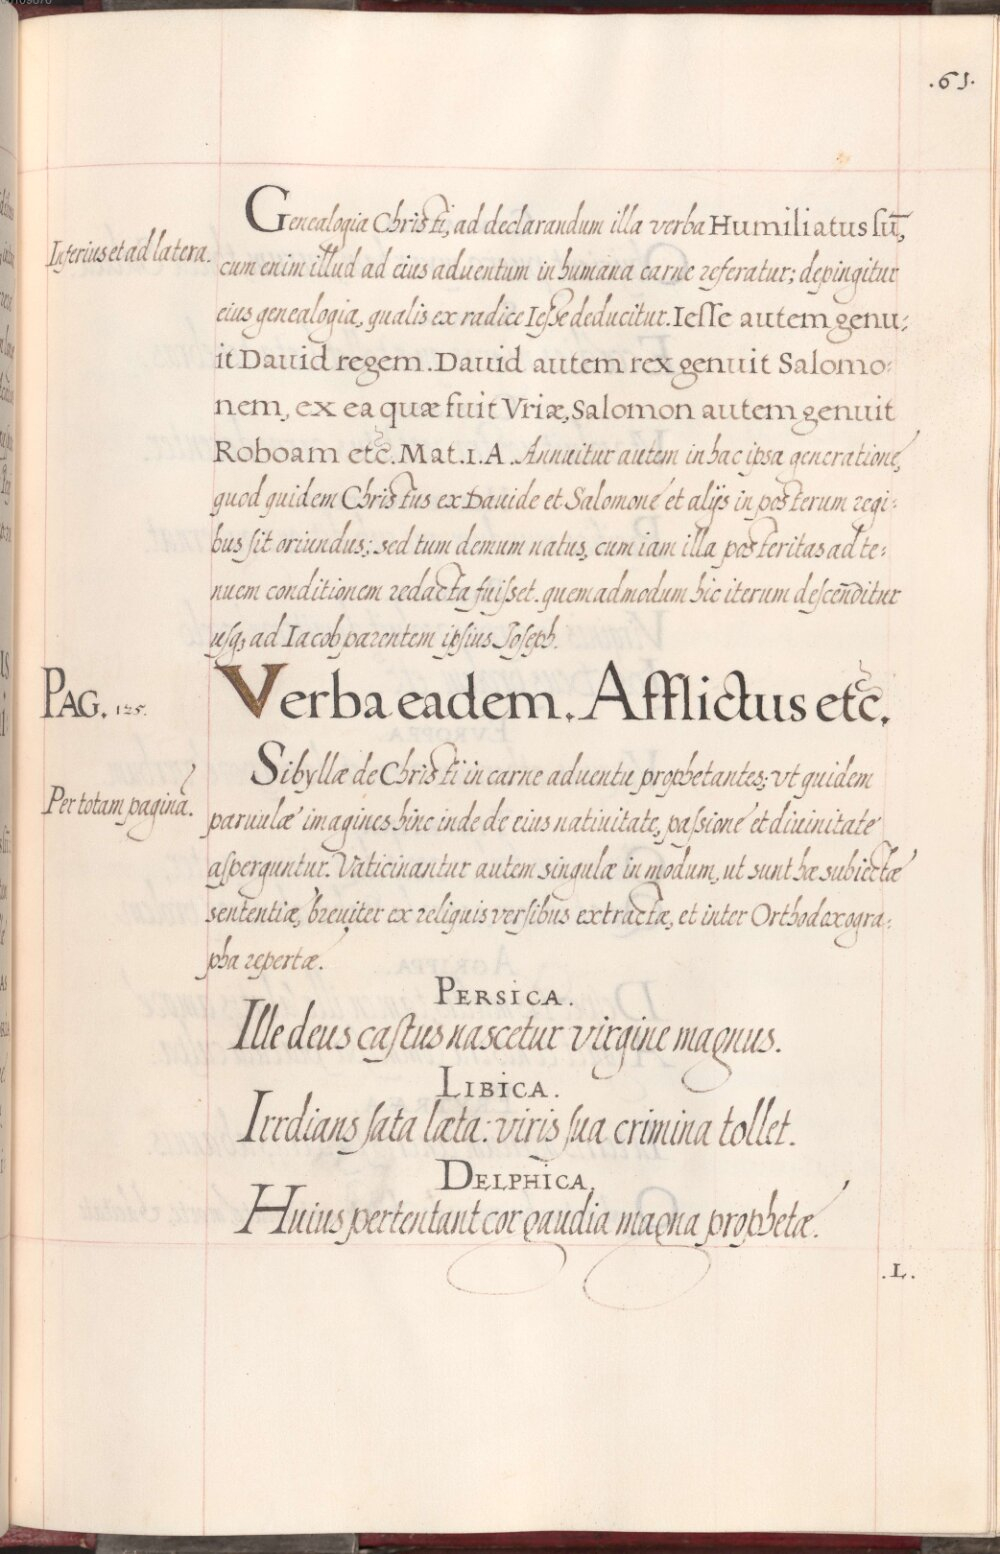 .61.
Inferius et ad latera.
Genealogia Christi, ad declarandum illa verba Humiliatus sū,
cum enim illud ad eius aduentum in humana carne referatur; depingitur
eius genealogia, qualis ex radice Iesse deducitur. Iesse autem genu:
it Dauid regem. Dauid autem rex genuit Salomo:
nem, ex ea quæ fuit Vriæ, Salomon autem genuit
Roboam etc. Mat.1.A. Annuitur autem in hac ipsa generatione,
quod quidem Christus ex Dauide et Salomone et alijs in posterum regi:
bus sit oriundus; sed tum demum natus, cum iam illa posteritas ad te:
nuem conditionem redacta fuisset. quemadmodum hic iterum descēnditur
usq; ad Iacob parentem ipsius Joseph.
PAG. 125.
Verba eadem. Afflictus etc.
Per totam pagina.
Sibyllæ de Christi in carne aduentu prophetantes; vt quidem
paruulæ imagines hinc inde de eius natiuitate, passione et diuinitate
asperguntur. Vaticinantur autem singulæ in modum, ut sunt hæ subiectæ
sententiæ, breuiter ex reliquis versibus extractæ, et inter Orthodoxogra:
pha repertæ.
PERSICA.
Ille deus castus nascetur virgine magnus.
LIBICA.
Irrdians sata læta: viris sua crimina tollet.
DELPHICA.
Huius pertentant cor gaudia magna prophetæ.
.L.